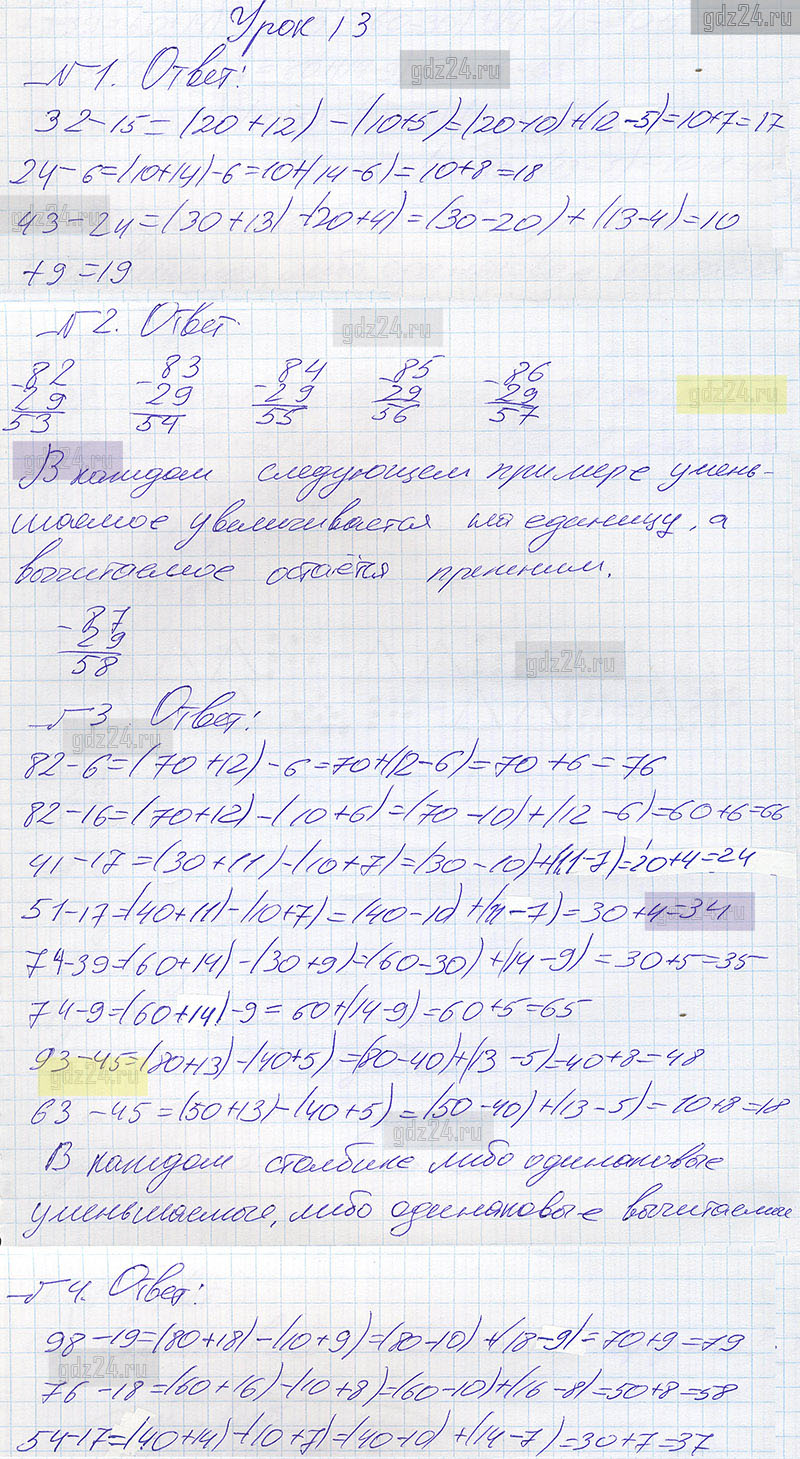 Урок 13
gdz24.ru
№1. Ответ:
gdz24.ru
32-15=(20+12)-(10+5)=(20-10)+(12-5)=10+7=17
24-6=(10+14)-6=10+(14-6)=10+8=18
gdz24.ru
43-24=(30+13)-(20+4)=(30-20)+(13-4)=10
+9=19
№2. Ответ
gdz24.ru
-82 -83 -84 -85 -86
29 29 29 29 29
53 54 55 56 57
gdz24.ru
gdz24.ru
В каждом следующем примере умень-
шаемое увеличивается на единицу, а
вычитаемое остаётся прежним.
-87
29
58
gdz24.ru
№3 Ответ:
gdz24.ru
82-6=(70+12)-6=70+(12-6)=70+6=76
82-16=(70+12)-(10+6)=(70-10)+(12-6)=60+6=66
41-17=(30+11)-(10+7)=(30-10)+(11-7)=20+4=24
51-17=(40+11)-(10+7)=(40-10)+(11-7)=30+4=34
gdz24.ru
74-39=(60+14)-(30+9)=(60-30)+(14-9)=30+5=35
74-9=(60+14)-9=60+(14-9)=60+5=65
93-45=(80+13)-(40+5)=(80-40)+(13-5)=40+8=48
gdz24.ru
63-45=(50+13)-(40+5)=(50-40)+(13-5)=10+8=18
gdz24.ru
В каждом столбике либо одинаковые
уменьшаемые, либо одинаковые вычитаемые
№4. Ответ:
98-19=(80+18)-(10+9)=(80-10)+(18-9)=70+9=79
gdz24.ru
76-18=(60+16)-(10+8)=(60-10)+(16-8)=50+8=58
54-17=(40+14)-(10+7)=(40-10)+(14-7)=30+7=37